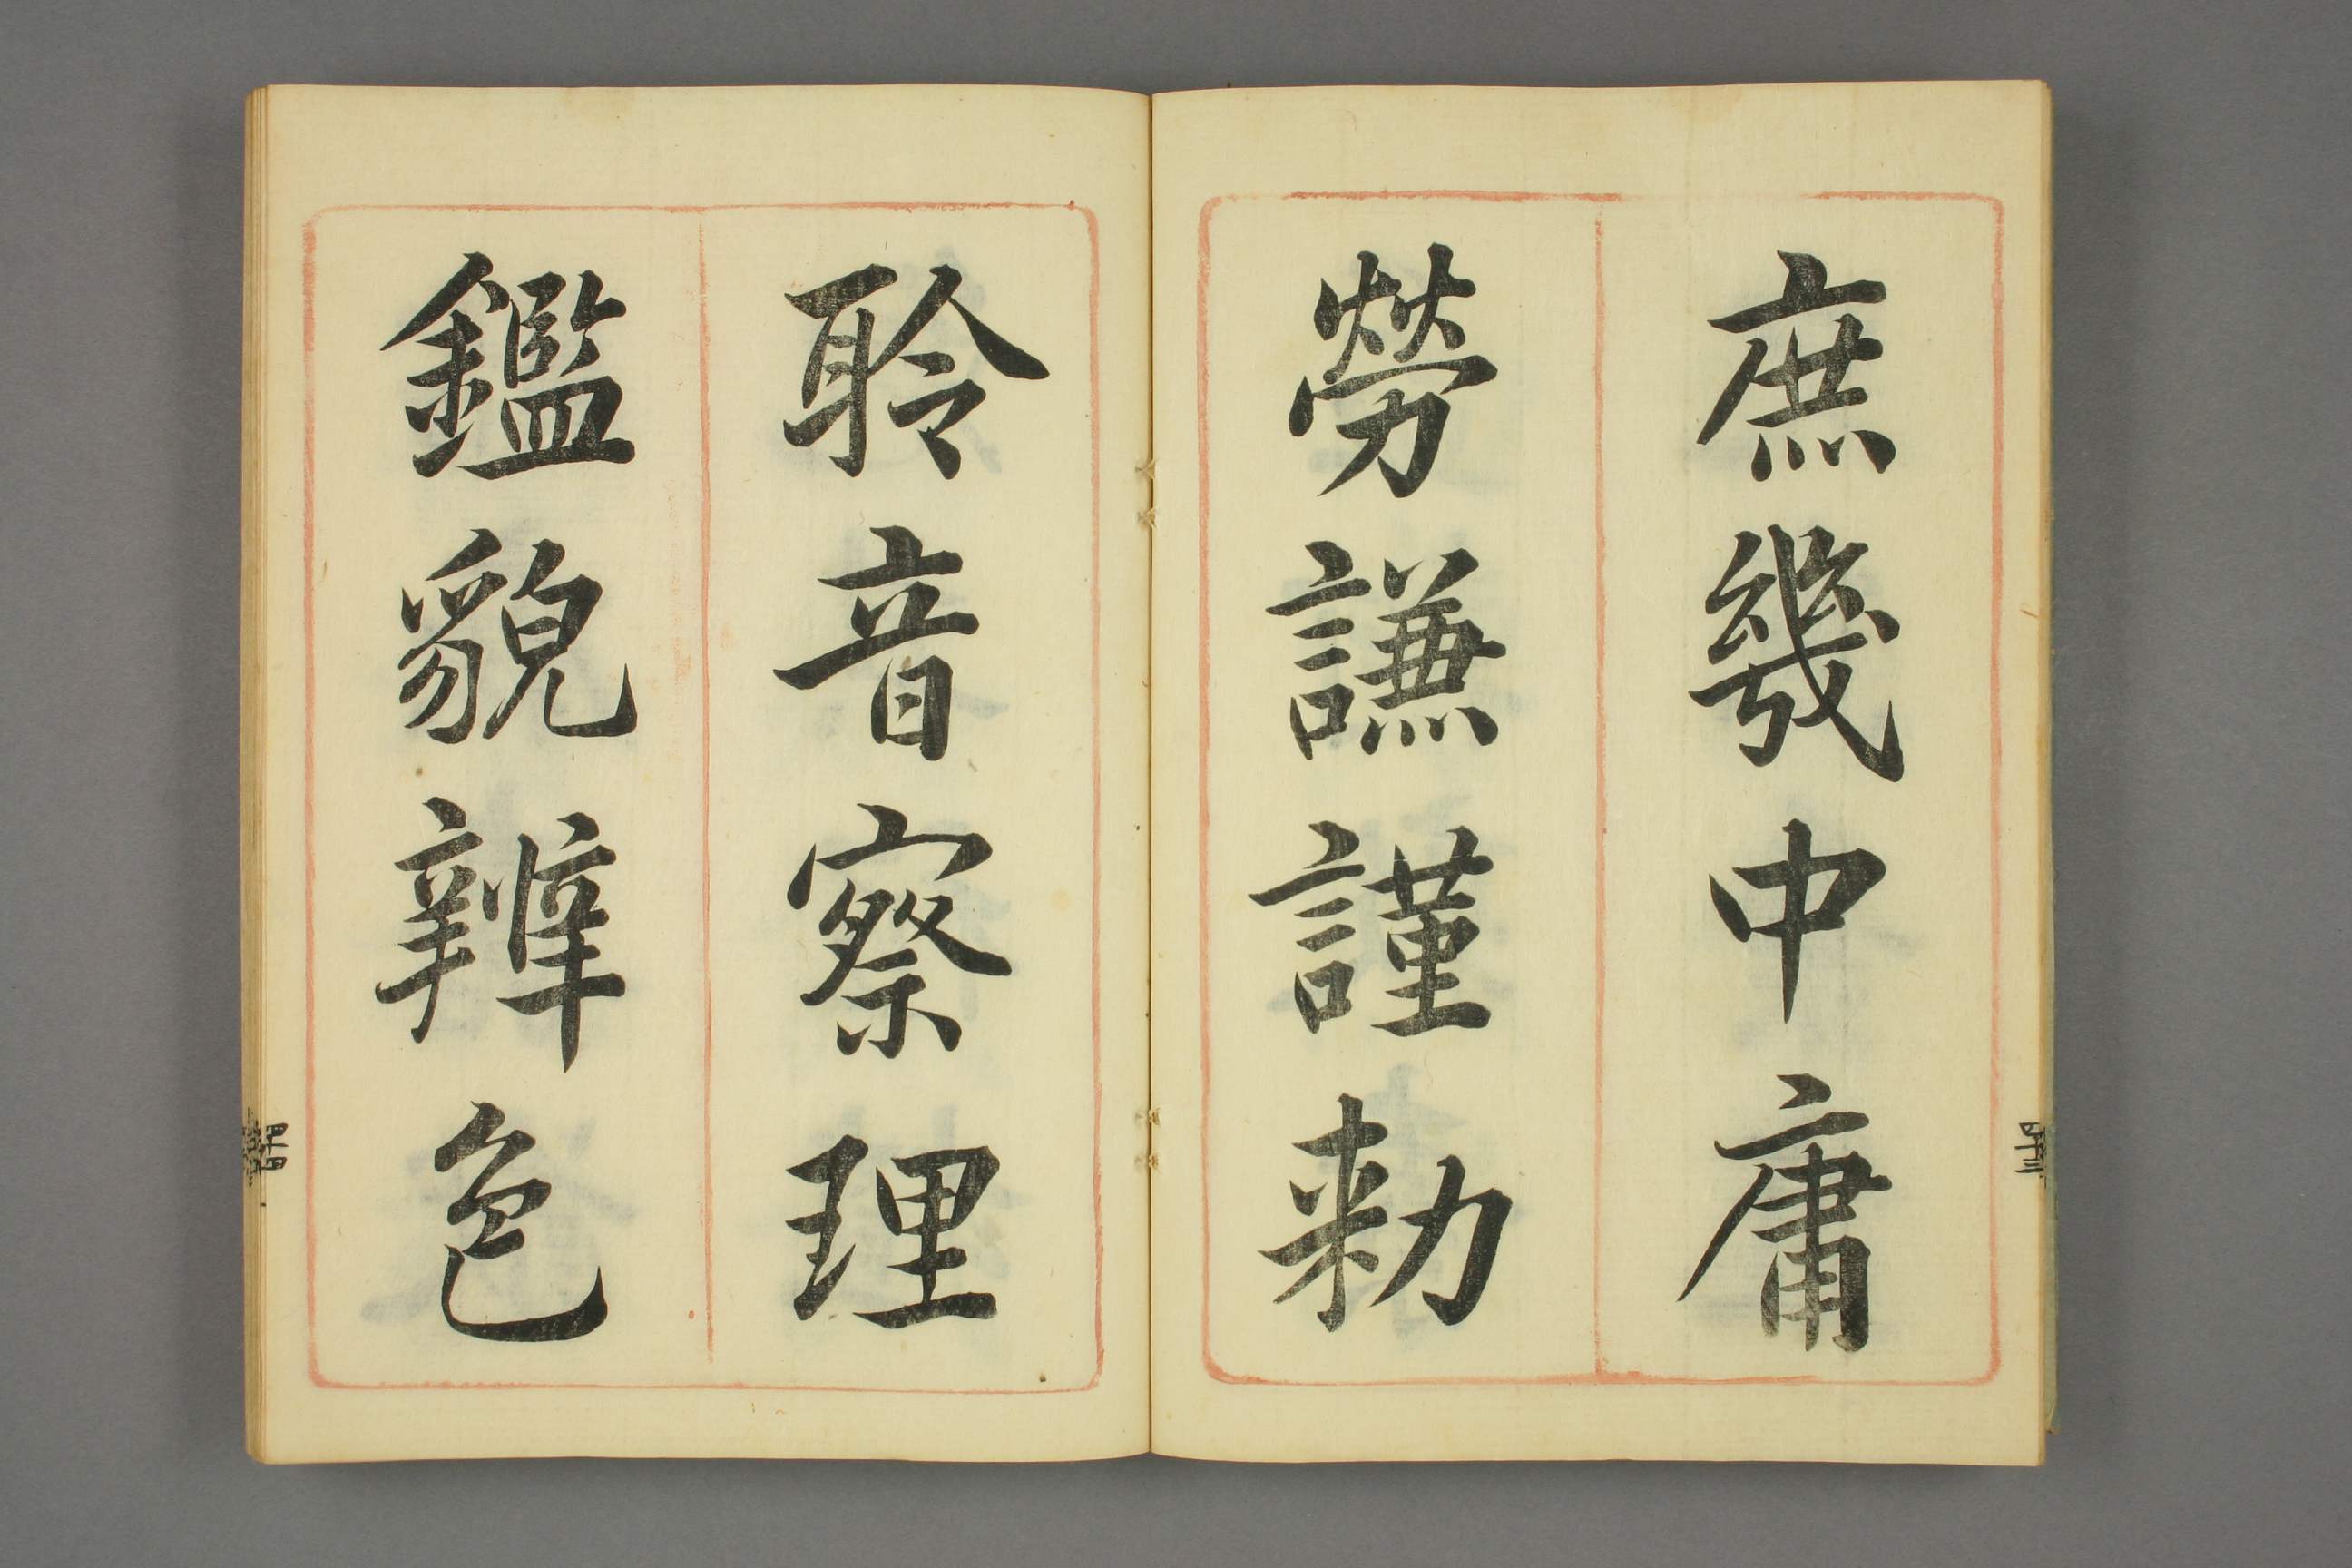 庶幾中庸
勞謙謹勅
聆音察理
鑑貌辨色
四十三
四十四